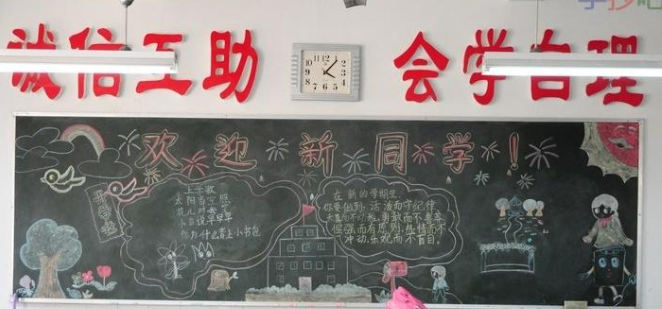 学抄吧
诚信互助 会学自理
欢迎新同学！
开学啦
上学歌
太阳当空照
花儿对我笑
小鸟说早早早
你为什么背上小书包
在新的学期里
你要做到：活泼而守纪律
天真而不幼稚，勇敢而不鲁莽
倔强而有原则，热情而不
冲动，乐观而不盲目。